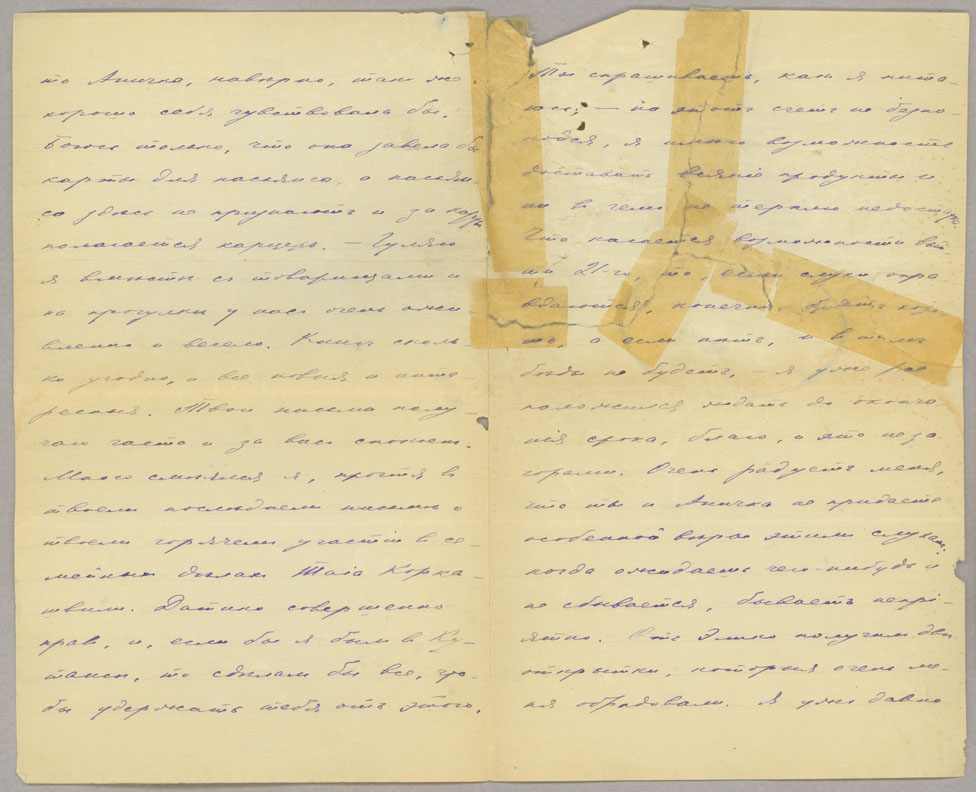 то Аничка, навѣрно, тамъ же
хорошо себя чувствовала бы.
Боюсь только, что она завела бы
карты для пасьянса, а пасьян-
са здѣсь не признаютъ и за карты
полагается карцеръ. — Гуляю
я вмѣстѣ съ товарищами и
на прогулкѣ у насъ очень ожи-
вленно и весело. Книгъ сколь-
ко угодно, и все новыя и инте-
ресныя. Твои письма полу-
чаю часто и за васъ спокоенъ.
Много смѣялся я, прочтя въ
твоемъ послѣднемъ письмѣ о
твоемъ горячемъ участіи въ се-
мейныхъ дѣлахъ Корка-
швили. Датико совершенно
правъ, и, если бы я былъ въ Ку-
таисѣ, то сдѣлалъ бы все, что-
бы удержать тебя отъ этого.
Ты спрашиваешь, какъ я пита-
юсь, — на этотъ счетъ не безпо-
койся, я имѣю возможность
доставать всякіе продукты и
ни въ чемъ не терплю недостатка.
Что касается возможности вый-
ти 21-го, то если слухи опра-
вдаются, конечно будетъ хоро-
шо, а если нѣтъ, и въ томъ
бѣды не будетъ, — я уже рас-
положился ждать до оконча-
нія срока, благо, и это не за
горами. Очень радуетъ меня,
что ты и Аничка не придаете
особенной вѣры этимъ слухамъ.
когда ожидаешь чего-нибудь и
не сбывается, бываетъ непрі-
ятно. Отъ Элико получилъ двѣ
открытки, которыя очень ме-
ня обрадовали. Я уже давно